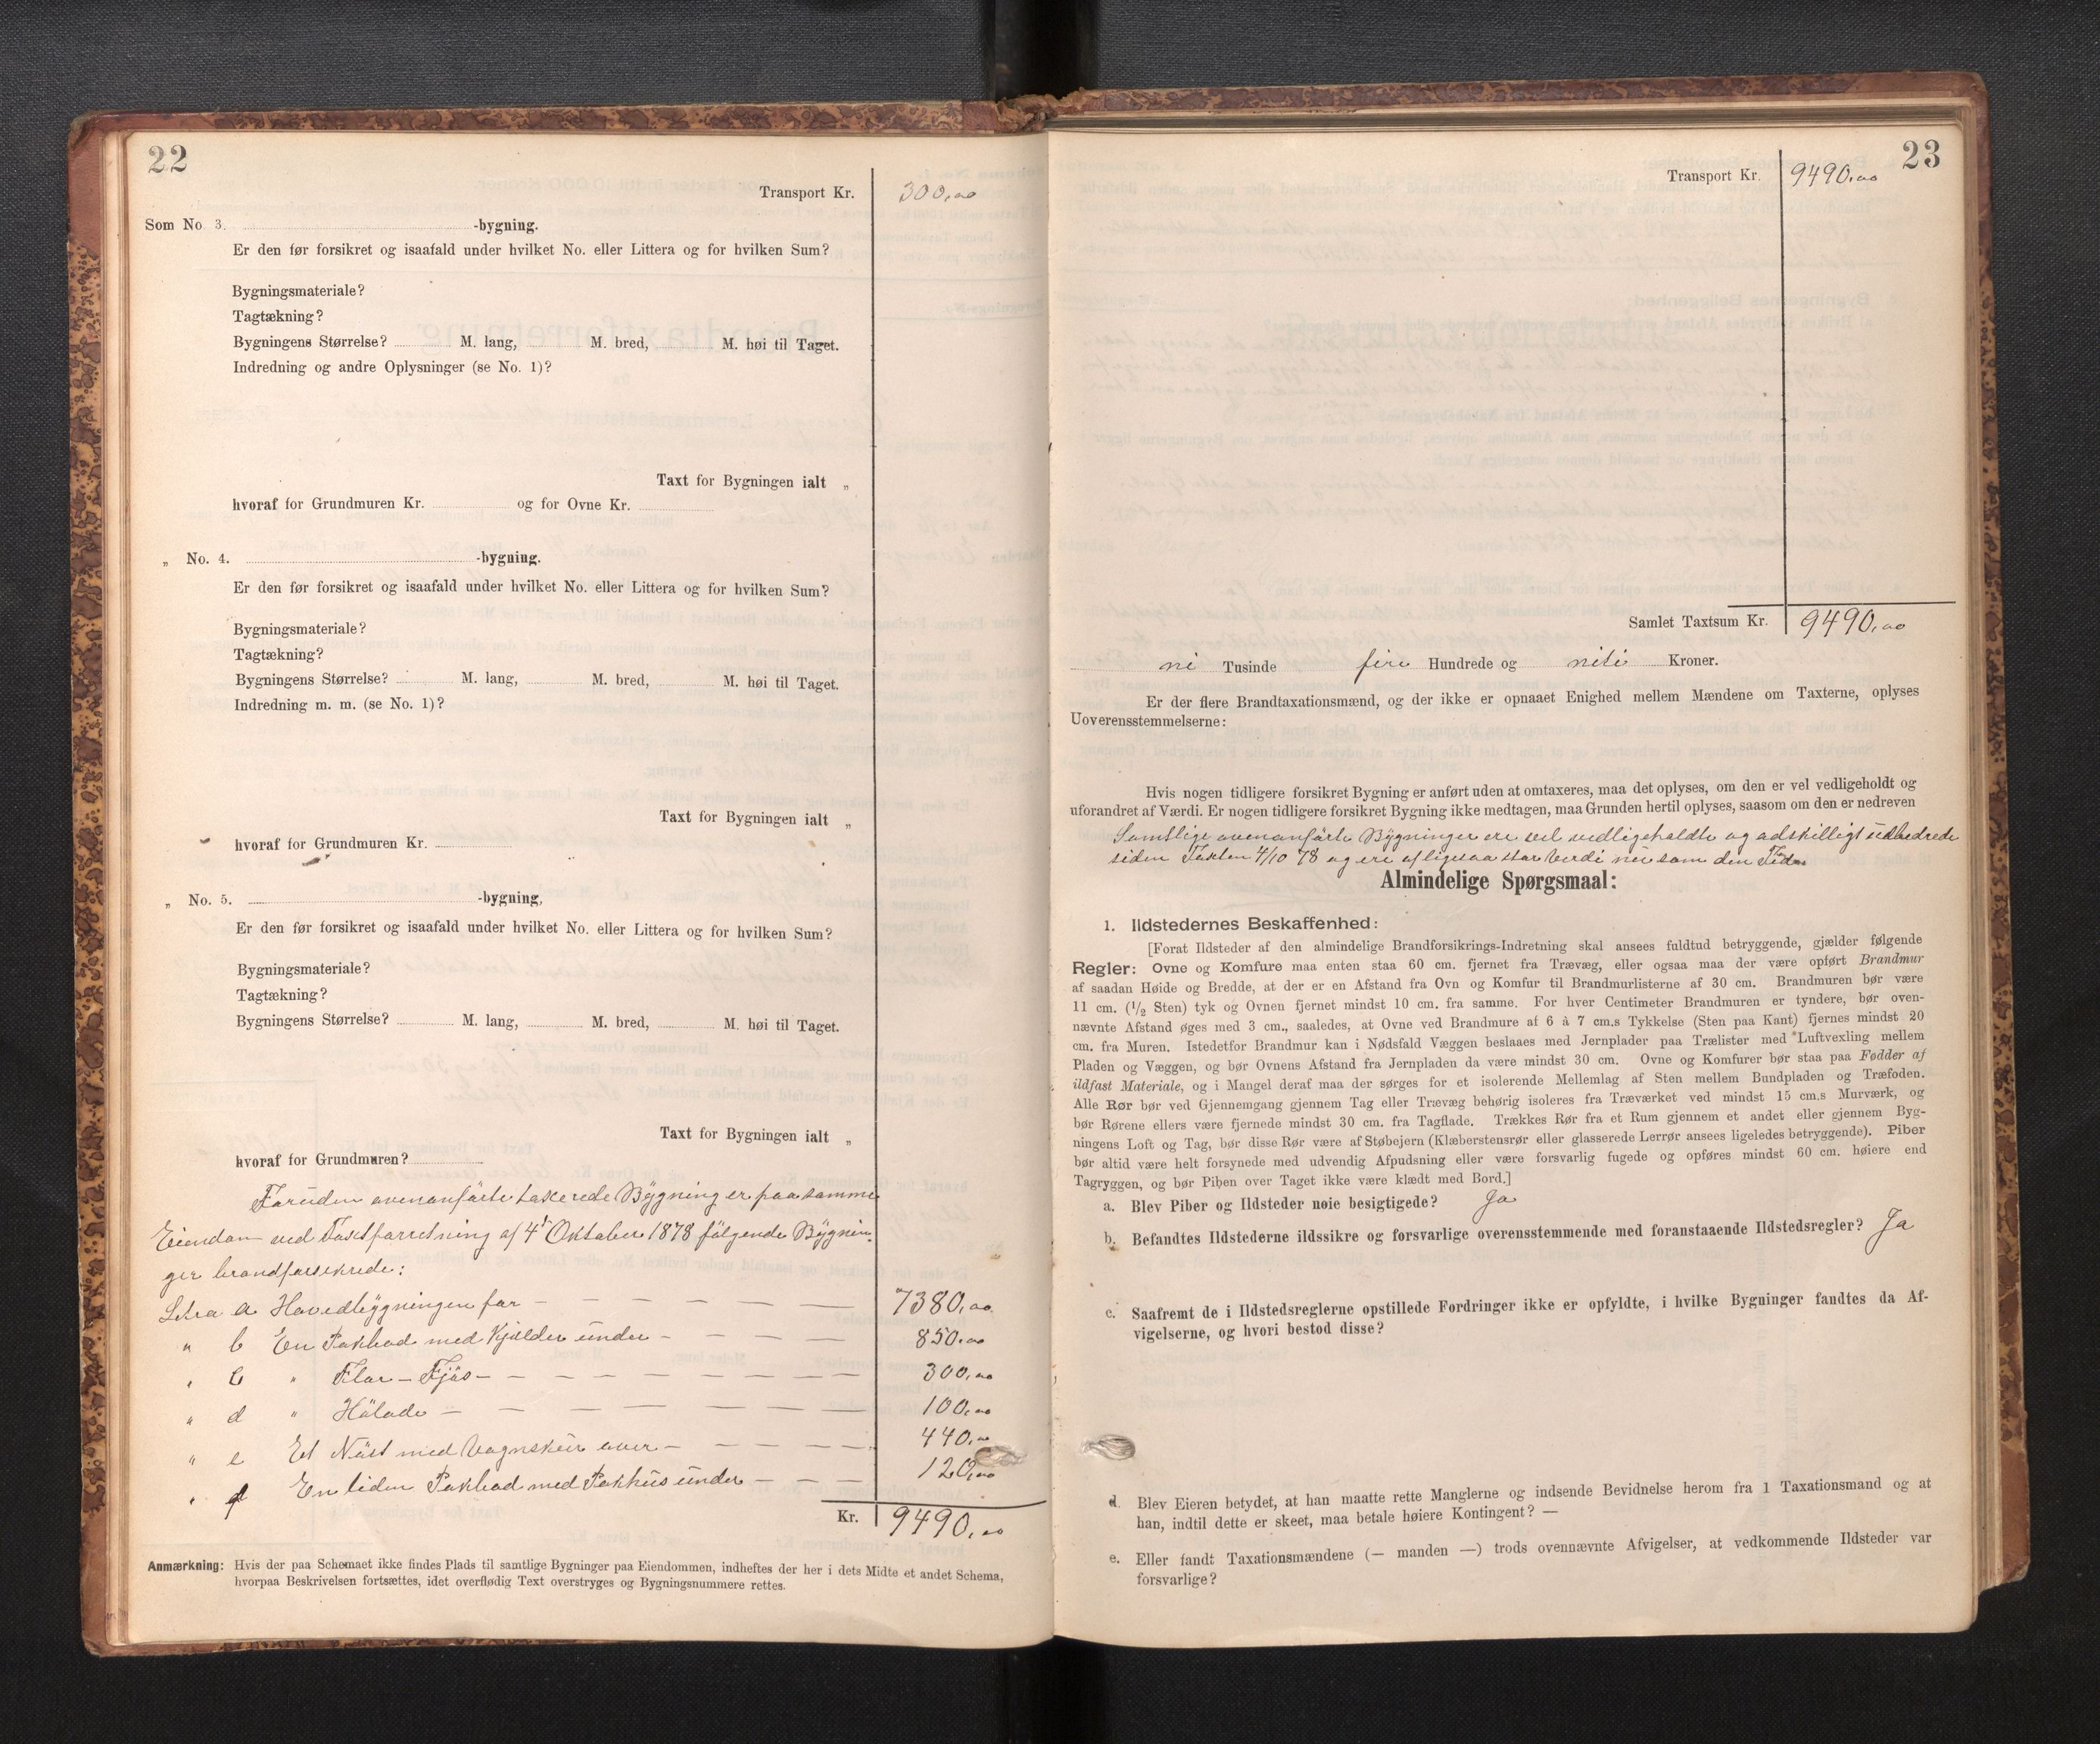 22
Transport Kr. 300,00
Som No. 3. -bygning.
Er den før forsikret og isaafald under hvilket No. eller Littera og for hvilken Sum?
Bygningsmateriale?
Tagtækning?
Bygningens Størrelse? M. lang, M. bred, M. høi til Taget.
Indredning og andre Oplysninger (se No. 1)?
Taxt for Bygningen ialt „
hvoraf for Grundmuren Kr. og for Ovne Kr.
„ No. 4. -bygning.
Er den før forsikret og isaafald under hvilket No. eller Littera og for hvilken Sum?
Bygningsmateriale?
Tagtækning?
Bygningens Størrelse? M. lang, M. bred, M. høi til Taget.
Indredning m. m. (se No. 1)?
Taxt for Bygningen ialt „
hvoraf for Grundmuren Kr.
„ No. 5. -bygning,
Er den før forsikret og isaafald under hvilket No. eller Littera og for hvilken Sum?
Bygningsmateriale?
Tagtækning?
Bygningens Størrelse? M. lang, M. bred, M. høi til Taget.
Taxt for Bygningen ialt „
hvoraf for Grundmuren?
Foruden ovenanførte taxerede Bygning er paa samme
Eiendom ved Taxtforretning af 4de Oktober 1878 følgende Bygnin-
ger brandforsikrede:
Litra a Hovedbygningen for — 7380,00
„ b En Pakbod med Kjælder under — 850.00
„ c „ Flor-Fjøs — 300,00
„ d „ Hølade — 100,00
„ e Et Nøst med Vognskur over — 440,00
„ f En liden Pakbod med Pakhus under — 120,00
Kr. 9490,00
Anmærkning: Hvis der paa Schemaet ikke findes Plads til samtlige Bygninger paa Eiendommen, indheftes der her i dets Midte et andet Schema,
hvorpaa Beskrivelsen fortsættes, idet overflødig Text overstryges og Bygningsnummere rettes.
23
Transport Kr. 9490,00
Samlet Taxtsum Kr. 9490,00
ni Tusinde fire Hundrede og niti Kroner.
Er der flere Brandtaxationsmænd, og der ikke er opnaaet Enighed mellem Mændene om Taxterne, oplyses
Uoverensstemmelserne:
Hvis nogen tidligere forsikret Bygning er anført uden at omtaxeres, maa det oplyses, om den er vel vedligeholdt og
uforandret af Værdi. Er nogen tidligere forsikret Bygning ikke medtagen, maa Grunden hertil oplyses, saasom om den er nedreven
Samtlige ovenanførte Bygninger ere vel vedligeholdte og adskilligt udbedrede
siden Taxten 4/10 78 og ere af ligesaa stor Verdi nu som den Tid.
Almindelige Spørgsmaal:
1. Ildstedernes Beskaffenhed:
[Forat Ildsteder af den almindelige Brandforsikrings-Indretning skal ansees fuldtud betryggende, gjælder følgende
Regler: Ovne og Komfure maa enten staa 60 cm. fjernet fra Trævæg, eller ogsaa maa der være opført Brandmur
af saadan Høide og Bredde, at der er en Afstand fra Ovn og Komfur til Brandmurlisterne af 30 cm. Brandmuren bør være
11 cm. (1/2 Sten) tyk og Ovnen fjernet mindst 10 cm. fra samme. For hver Centimeter Brandmuren er tyndere, bør oven-
nævnte Afstand øges med 3 cm., saaledes, at Ovne ved Brandmure af 6 à 7 cm.s Tykkelse (Sten paa Kant) fjernes mindst 20
cm. fra Muren. Istedetfor Brandmur kan i Nødsfald Væggen beslaaes med Jernplader paa Trælister med Luftvexling mellem
Pladen og Væggen, og bør Ovnens Afstand fra Jernpladen da være mindst 30 cm. Ovne og Komfurer bør staa paa Fødder af
ildfast Materiale, og i Mangel deraf maa der sørges for et isolerende Mellemlag af Sten mellem Bundpladen og Træfoden.
Alle Rør bør ved Gjennemgang gjennem Tag eller Trævæg behørig isoleres fra Træværket ved mindst 15 cm.s Murværk, og
bør Rørene ellers være fjernede mindst 30 cm. fra Tagflade. Trækkes Rør fra et Rum gjennem et andet eller gjennem Byg-
ningens Loft og Tag, bør disse Rør være af Støbejern (Klæberstensrør eller glasserede Lerrør ansees ligeledes betryggende). Piber
bør altid være helt forsynede med udvendig Afpudsning eller være forsvarlig fugede og opføres mindst 60 cm. høiere end
Tagryggen, og bør Piben over Taget ikke være klædt med Bord.]
a. Blev Piber og Ildsteder nøie besigtigede? Ja
b. Befandtes Ildstederne ildssikre og forsvarlige overensstemmende med foranstaaende Ildstedsregler? Ja
c. Saafremt de i Ildstedsreglerne opstillede Fordringer ikke er opfyldte, i hvilke Bygninger fandtes da Af-
vigelserne, og hvori bestod disse?
d. Blev Eieren betydet, at han maatte rette Manglerne og indsende Bevidnelse herom fra 1 Taxationsmand og at
han, indtil dette er skeet, maa betale høiere Kontingent? —
e. Eller fandt Taxationsmændene (— manden —) trods ovennævnte Afvigelser, at vedkommende Ildsteder var
forsvarlige?